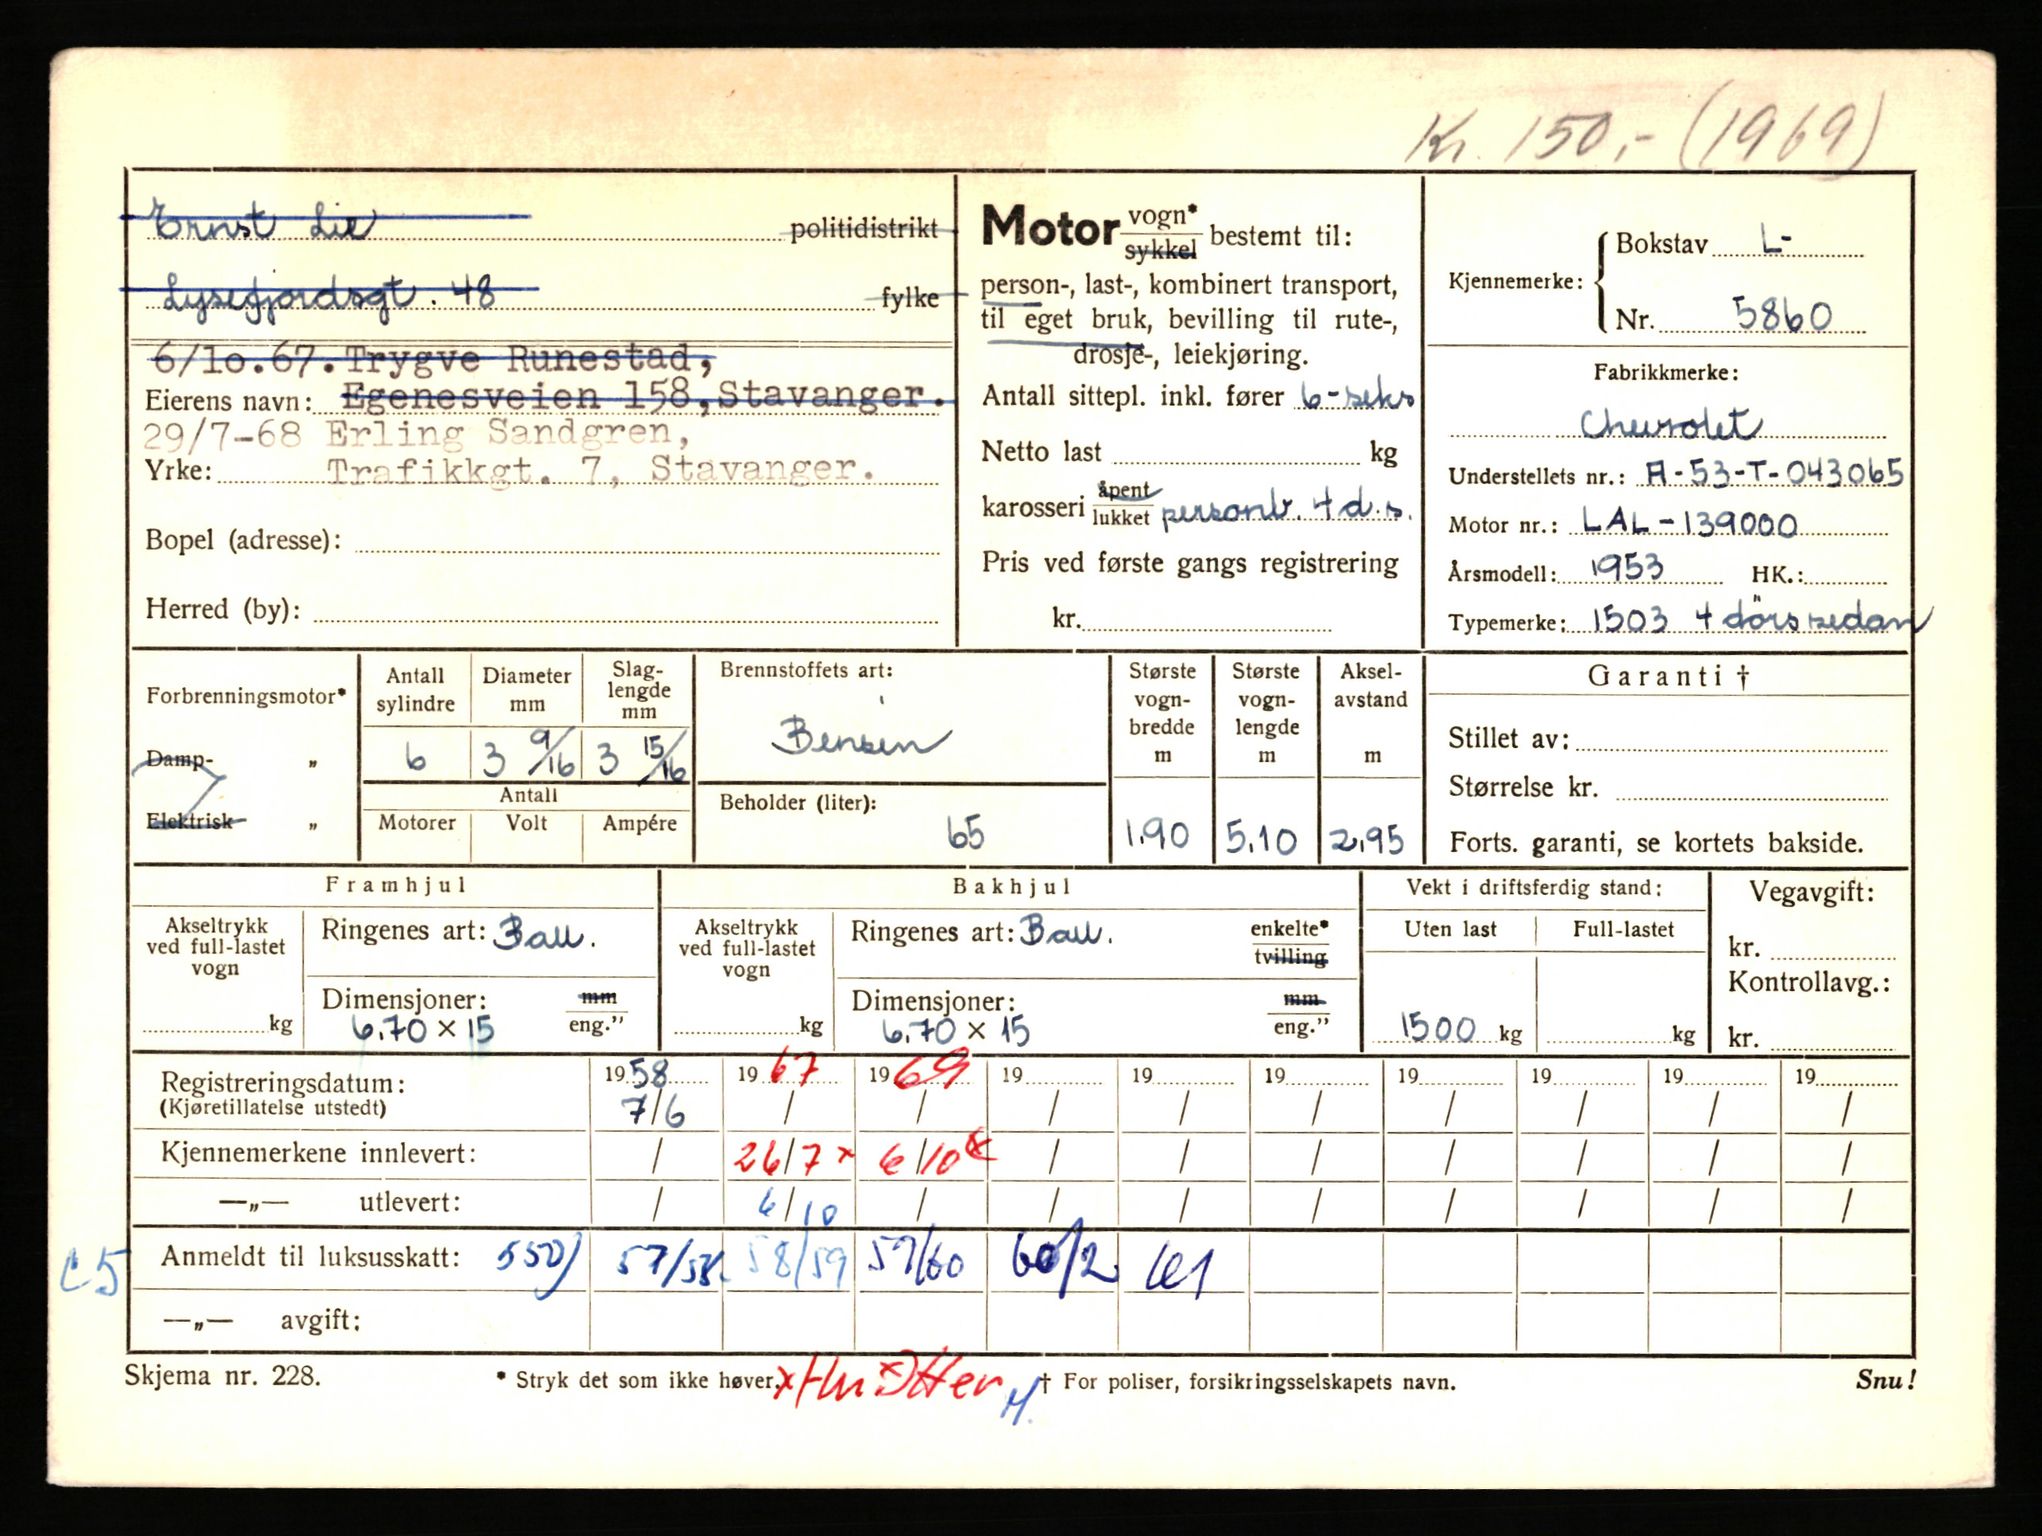 Kr. 150,- (1969)
Ernst Lie politidistrikt
Lysefjordsgt. 48 fylke
6/10.67. Trygve Runestad,
Eierens navn: Egenesveien 158, Stavanger.
29/7-68 Erling Sandgren,
Yrke: Trafikkgt. 7, Stavanger.
Bopel (adresse):
Herred (by):
Motor vogn* sykkel bestemt til:
person-, last-, kombinert transport,
til eget bruk, bevilling til rute-,
drosje-, leiekjøring.
Antall sittepl. inkl. fører 6-seks
Netto last kg
karosseri åpent lukket personb. 4 d.s.
Pris ved første gangs registrering
kr.
Kjennemerke: Bokstav L-
Nr. 5860
Fabrikkmerke:
Chevrolet
Understellets nr.: A-53-T-043065
Motor nr.: LAL-139000
Årsmodell: 1953 HK.:
Typemerke: 1503 4 dörs sedan
Forbrenningsmotor*
Damp- „
Elektrisk „
Antall sylindre 6
Diameter mm 3 9/16
Slag-lengde mm 3 15/16
Antall
Motorer Volt Ampére
Brennstoffets art:
Bensin
Beholder (liter):
65
Største vogn-bredde m 1,90
Største vogn-lengde m 5,10
Aksel-avstand m 2,95
Garanti †
Stillet av:
Størrelse kr.
Forts. garanti, se kortets bakside.
Framhjul
Akseltrykk ved full-lastet vogn kg
Ringenes art: Ball.
Dimensjoner: mm
6.70 × 15 eng."
Bakhjul
Akseltrykk ved full-lastet vogn kg
Ringenes art: Ball. enkelte* tvilling
Dimensjoner: mm
6.70 × 15 eng."
Vekt i driftsferdig stand:
Uten last Full-lastet
1500 kg kg
Vegavgift:
kr.
Kontrollavg.:
kr.
Registreringsdatum: 1958 1967 1969 19 19 19 19 19 19 19
(Kjøretillatelse utstedt) 7/6 / / / / / / / / /
Kjennemerkene innlevert: / 26/7 x 6/10 x / / / / / / /
—„— utlevert: / 6/10 / / / / / / / /
C5 Anmeldt til luksusskatt: 550) 57/58 58/59 59/60 60/2 61
—„— avgift:
Skjema nr. 228. * Stryk det som ikke høver. † For poliser, forsikringsselskapets navn. Snu!